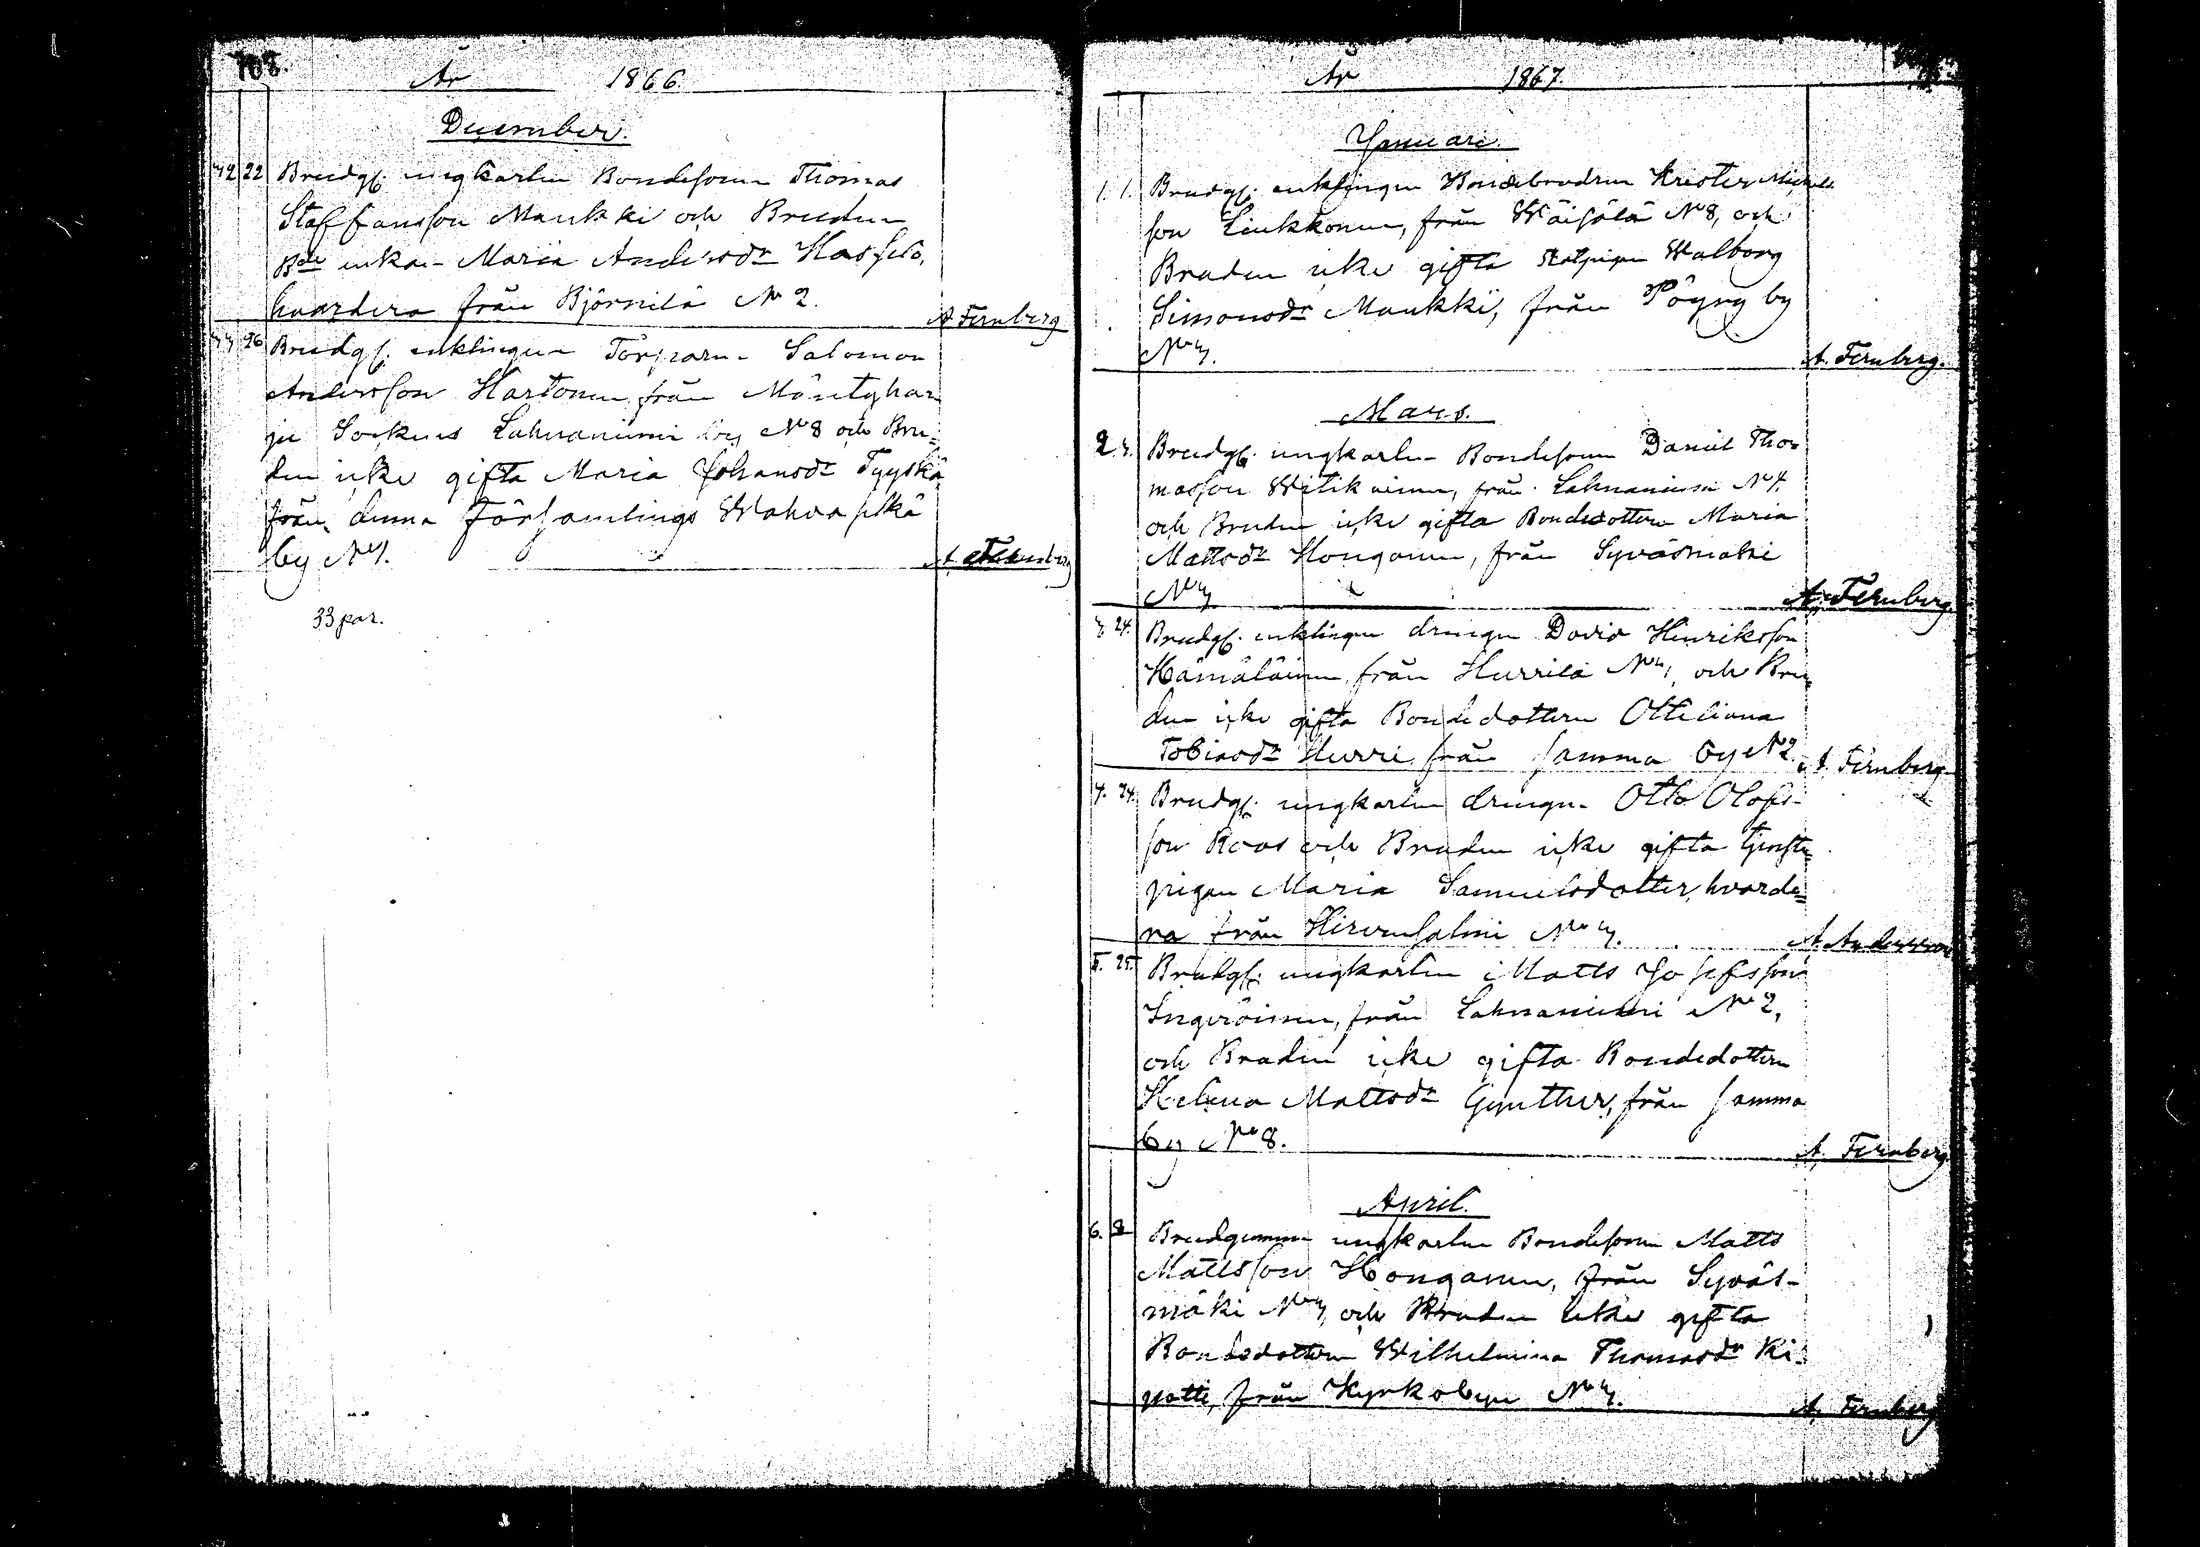 108.
År 1866.
December.
32 22 Brudg. ungkarlen Bondesonen Thomas
Staffansson Maukki och Bruden
Bde enkan Maria Andersdr Hasselö,
hvardera från Björnilä No 2. A Fernberg
33 26 Brudg. enklingen Torparen Salomon
Andersson Hartonen från Mäntyhar
ju Sockens Lahnaniemi by No 8 och Bru=
den icke gifta Maria Johansdr Tyyskä
från denna Församlings Wahva
by No 1. A Fernberg
33 par.
År 1867.
Januari.
1. 1. Brudg. enklingen Bondebrodren Krister Michels
son Liukkonen, från Wäisälä No 8, och
Bruden icke gifta Statpigan Walborg
Simonsdr Maukki, från Pöyry by
No 3. A. Fernberg.
Mars.
2. 3. Brudg. ungkarlen Bondesonen Daniel Tho=
masson Witikainen, från Lahnaniemi No 4.
och Bruden icke gifta Bondedottern Maria
Mattsdr Honganen, från Syväsmäki
No 3 A. Fernberg.
3. 24. Brudg. enklingen drengen David Hinriksson
Hämäläinen, från Hurrila No 1, och Bru=
den icke gifta Bondedottern Ottiliana
Tobiasdr Hurri från samma by No 2. A. Fernberg
4. 24. Brudg. ungkarlen drengen Otto Olofs-
son Roos och Bruden icke gifta tjenste
pigan Maria Samuelsdotter, hvarde=
ra från Hirvensalmi No 3. A. Andersson
5. 25. Brudg. ungkarlen Matts Josefsson
Inqeröinen, från Lahnaniemi No 2,
och Bruden icke gifta Bondedottern
Helena Mattsdr Gynther, från samma
by No 8. A. Fernberg
April.
6. 8 Brudgummen ungkarlen Bondesonen Matts
Mattsson Honganen, från Syväs-
mäki No 3, och Bruden icke gifta
Bondedottern Wilhelmina Thomasdr Ki=
potti, från Kyrkobyn No 3. A. Fernberg